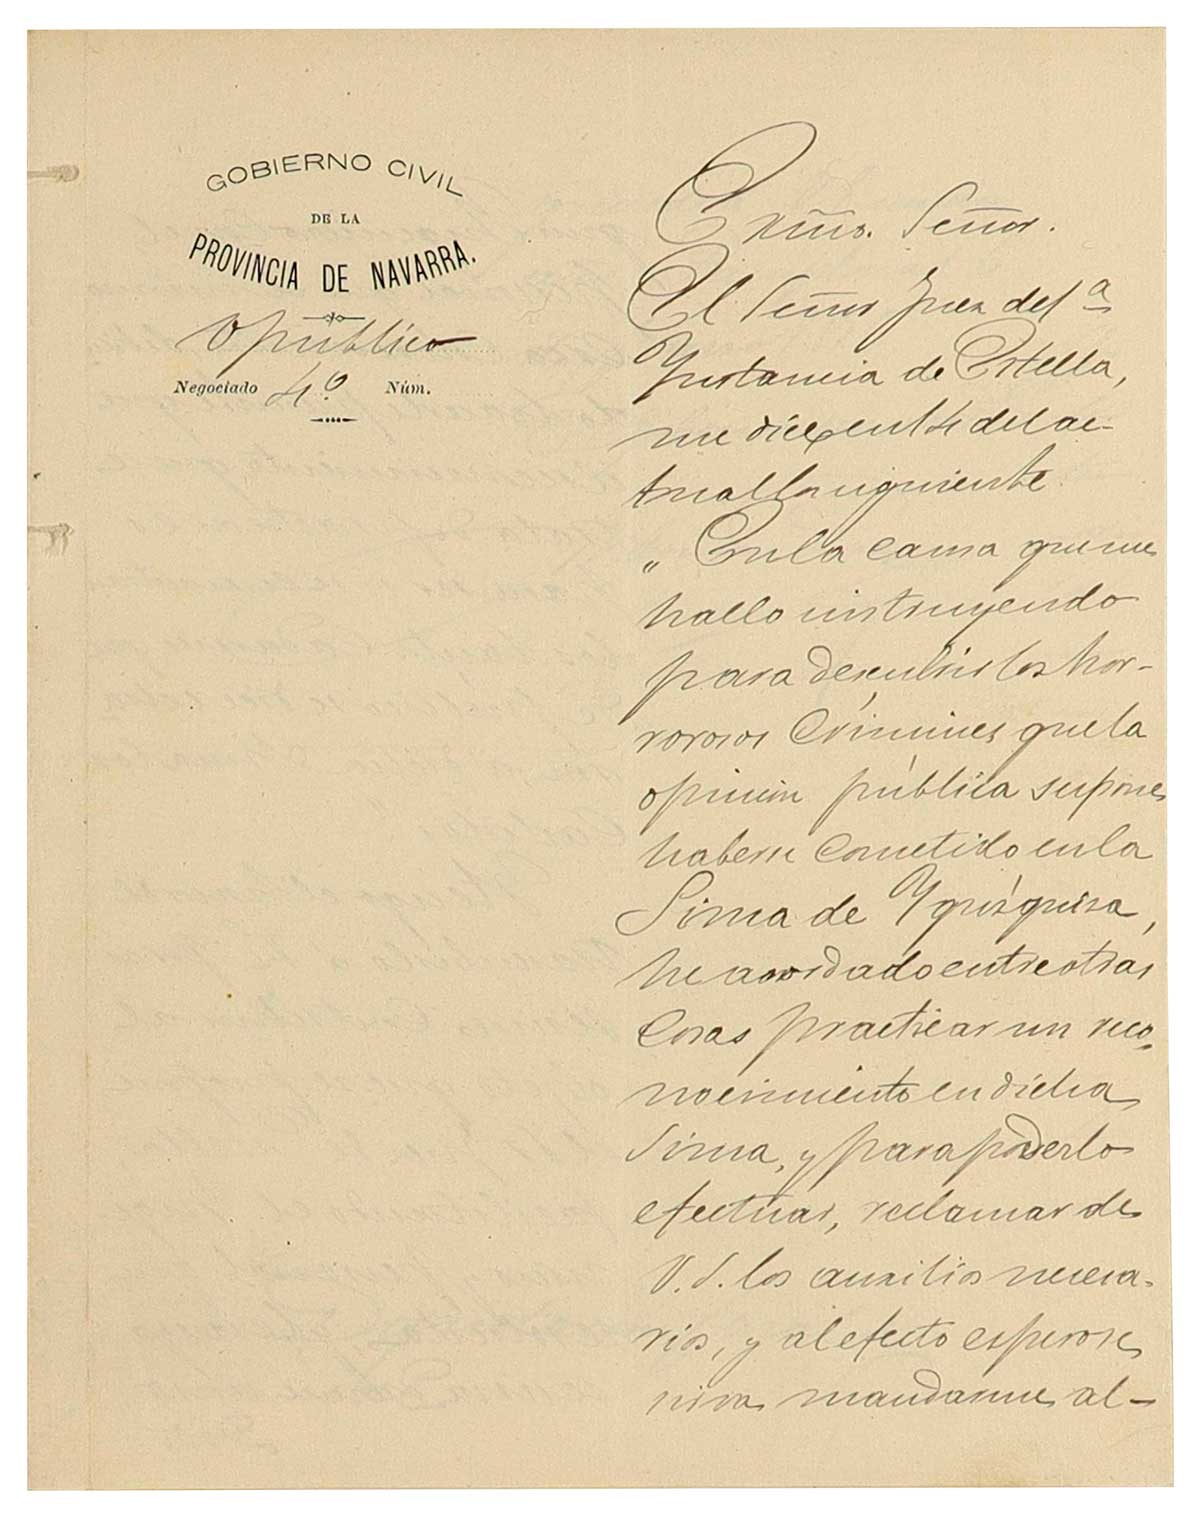 GOBIERNO CIVIL
DE LA
PROVINCIA DE NAVARRA.
O público
Negociado 4º Núm.
Exmo. Señor.
El Señor Juez de 1ª
Ynstancia de Estella,
me dice en 14 del ac-
tual lo siguiente
„ En la causa que me
hallo instruyendo
para descubrir los hor-
rorosos crimines que la
opinion pública supone
haberse cometido en la
Sima de Ygúzquiza,
he acordado entre otras
cosas practicar un reco-
nocimiento en dicha
Sima, y para poderlo
efectuar, reclamar de
V. S. los auxilios necesa-
rios, y al efecto espero se
sirva mandarme al-